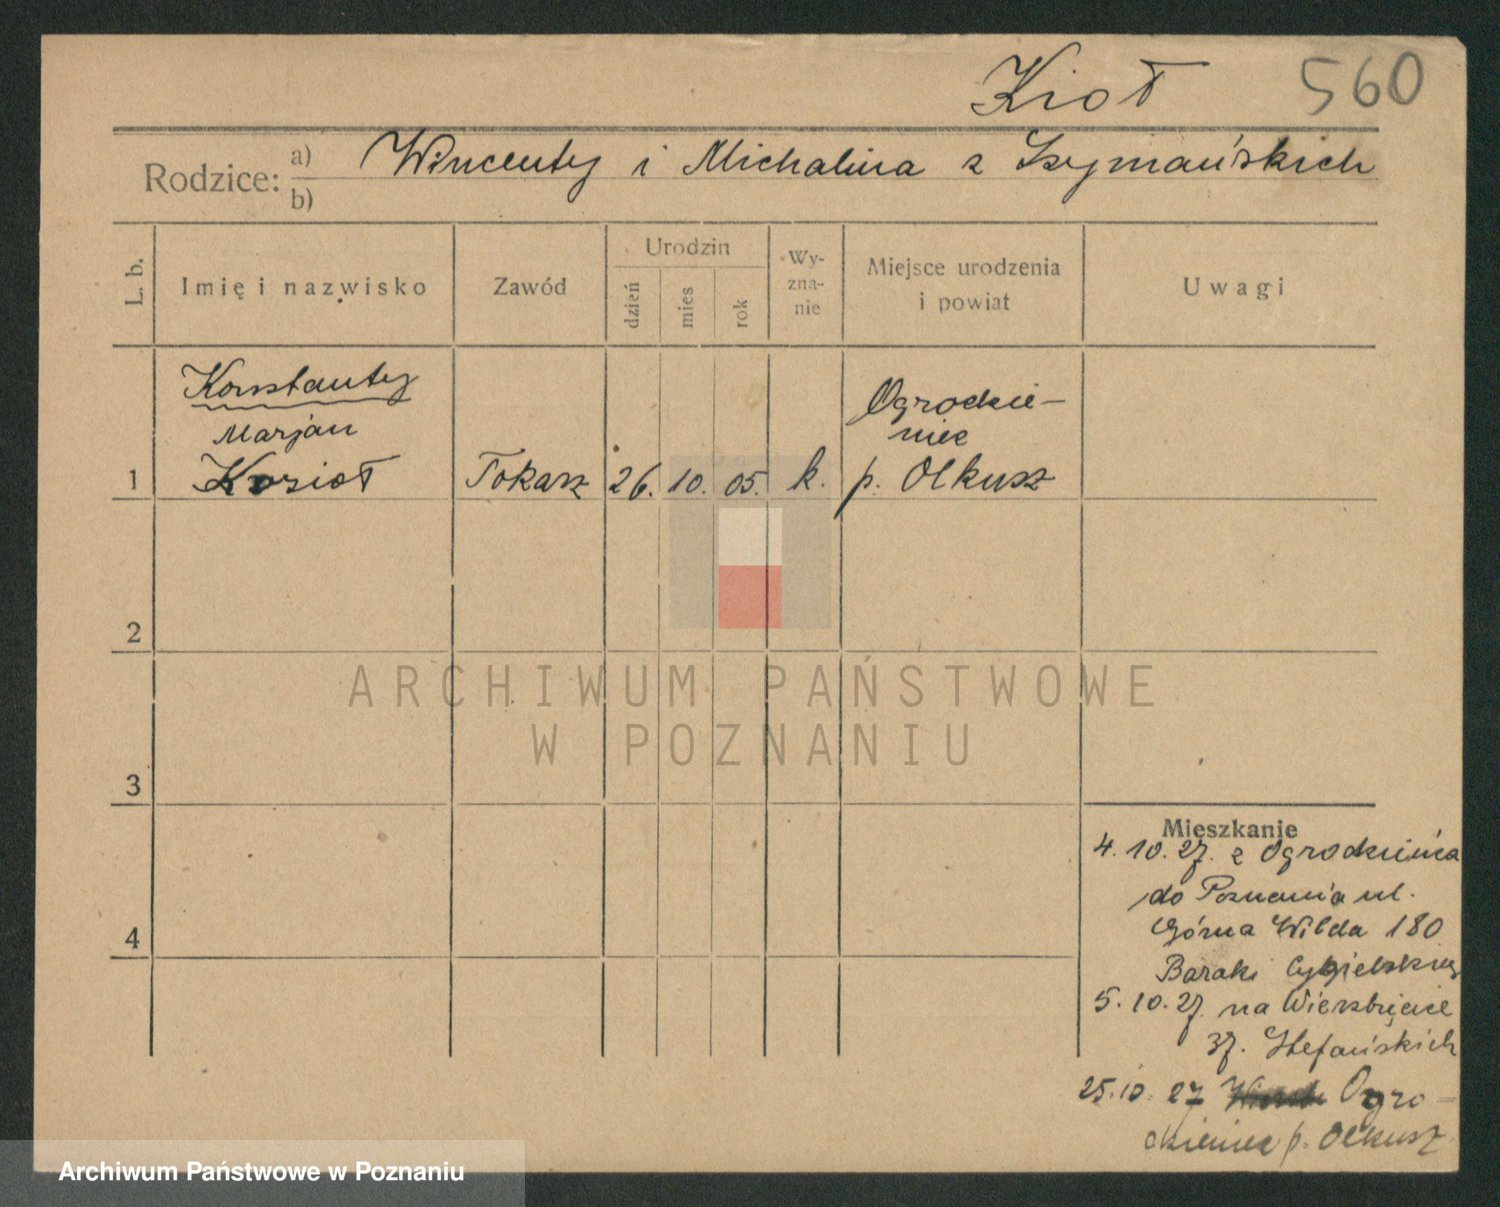 Kioł 560
Rodzice: a) Wincenty i Michalina z Szymańskich
b)
L. b.
Imię i nazwisko
Zawód
Urodzin
dzień
mies
rok
Wy-
zna-
nie
Miejsce urodzenia
i powiat
Uwagi
Konstanty
Marjan
1 Kozioł Tokarz 26. 10. 05. k.
Ogrodzie-
niec
p. Olkusz
2
3
4
ARCHIWUM PAŃSTWOWE
W POZNANIU
Mieszkanie
4. 10. 27. z Ogrodzieńca
do Poznania ul.
Górna Wilda 180
Baraki
5. 10. 27. na Wierzbięcice
37. Stefańskich
25. 10. 27 Ogro-
dzieniec p. Olkusz
Archiwum Państwowe w Poznaniu